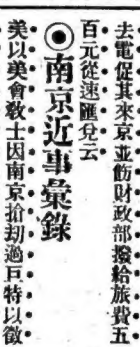 去電促其來京並飭財政部撥給旅費五
百元從速匯兌云
◉南京近事彙錄
美以美會教士因南京搶劫過巨特以徵